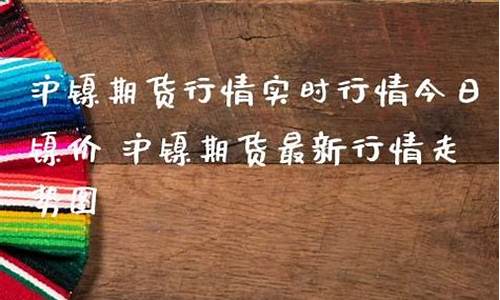 沪镍期货行情实时行情今日
镍价 沪镍期货最新行情走
势图